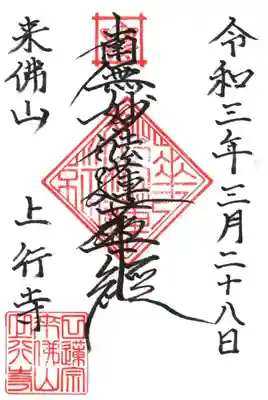 令和三年三月二十八日
南無妙法蓮華經
来佛山 上行寺
日蓮宗
来佛山
上行寺